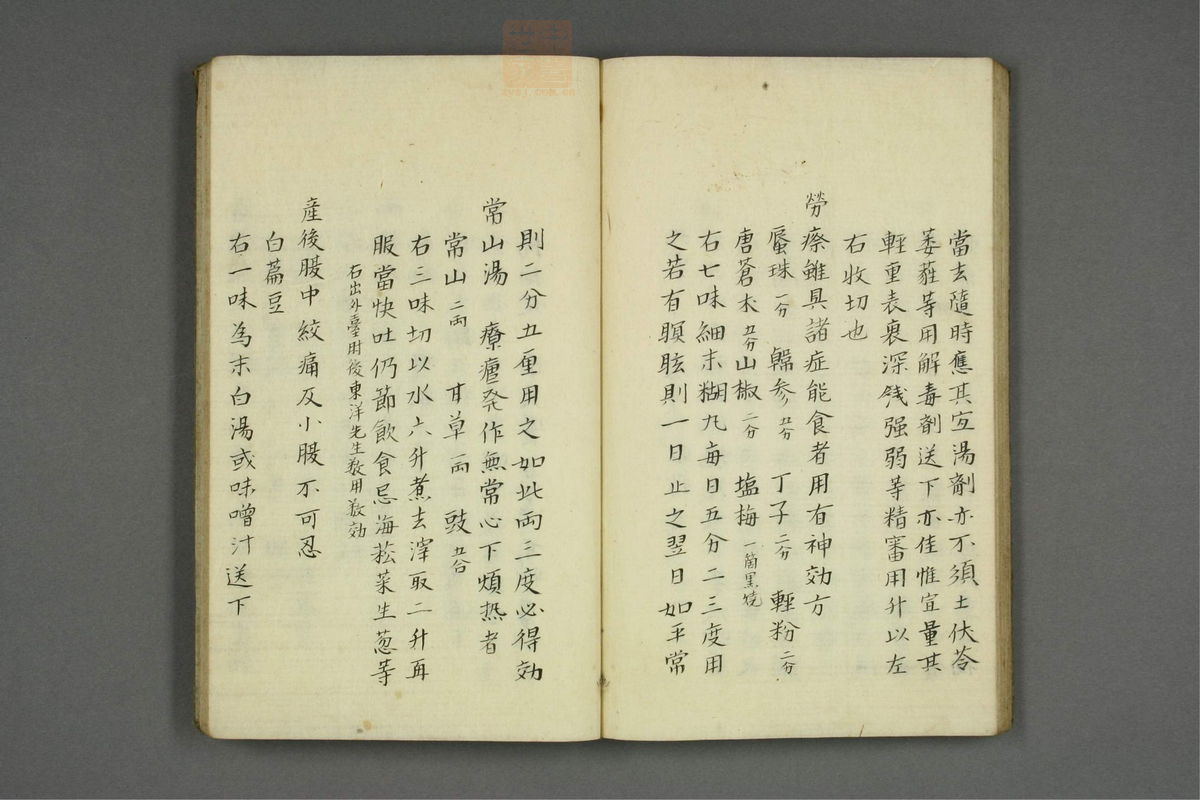 當去隨時應其宜湯劑亦不須土伏苓
萎蕤等用解毒劑送下亦佳惟宜量其
輕重表裏深銭强弱等精審用升以左
右收切也
勞瘵雖具諸症能食者用有神効方
蜃珠 一分 韓参 五分 丁子 二分 輕粉 二分
唐蒼朮 五分 山椒 二分 塩梅 一箇黒焼
右七味細末糊丸每日五分二三度用
之若有瞑眩則一日止之翌日如平常
則二分五厘用之如此両三度必得効
常山湯 療瘧発作無常心下煩热者
常山 二両 甘草 一両 豉 五合
右三味切以水六升煮去滓取二升再
服當快吐仍節飲食忌海菘菜生葱等
右出外臺肘後東洋先生数用数効
産後腹中絞痛及小腹不可忍
白藊豆
右一味為末白湯或味噌汁送下
zysj.com.cn